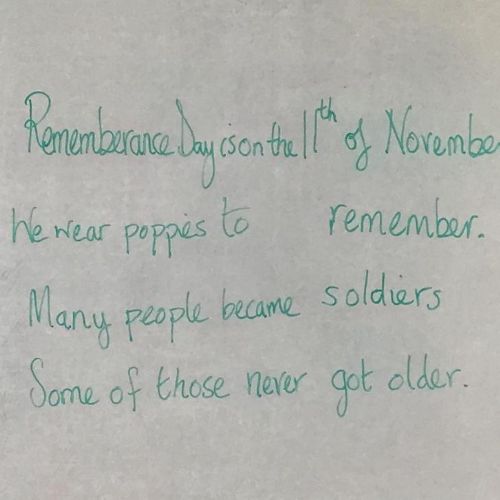 Rememberance Day is on the 11th of Novembe
We wear poppies to remember.
Many people became soldiers
Some of those never got older.